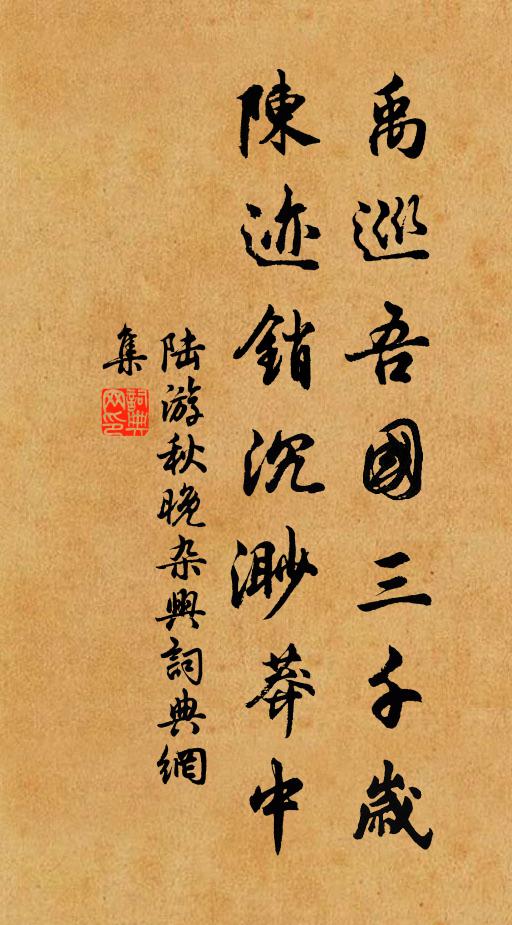 禹巡吾國三千歲
陳迹銷沉渺莽中
陆游秋晚杂興詞典網
集
詞典
网印